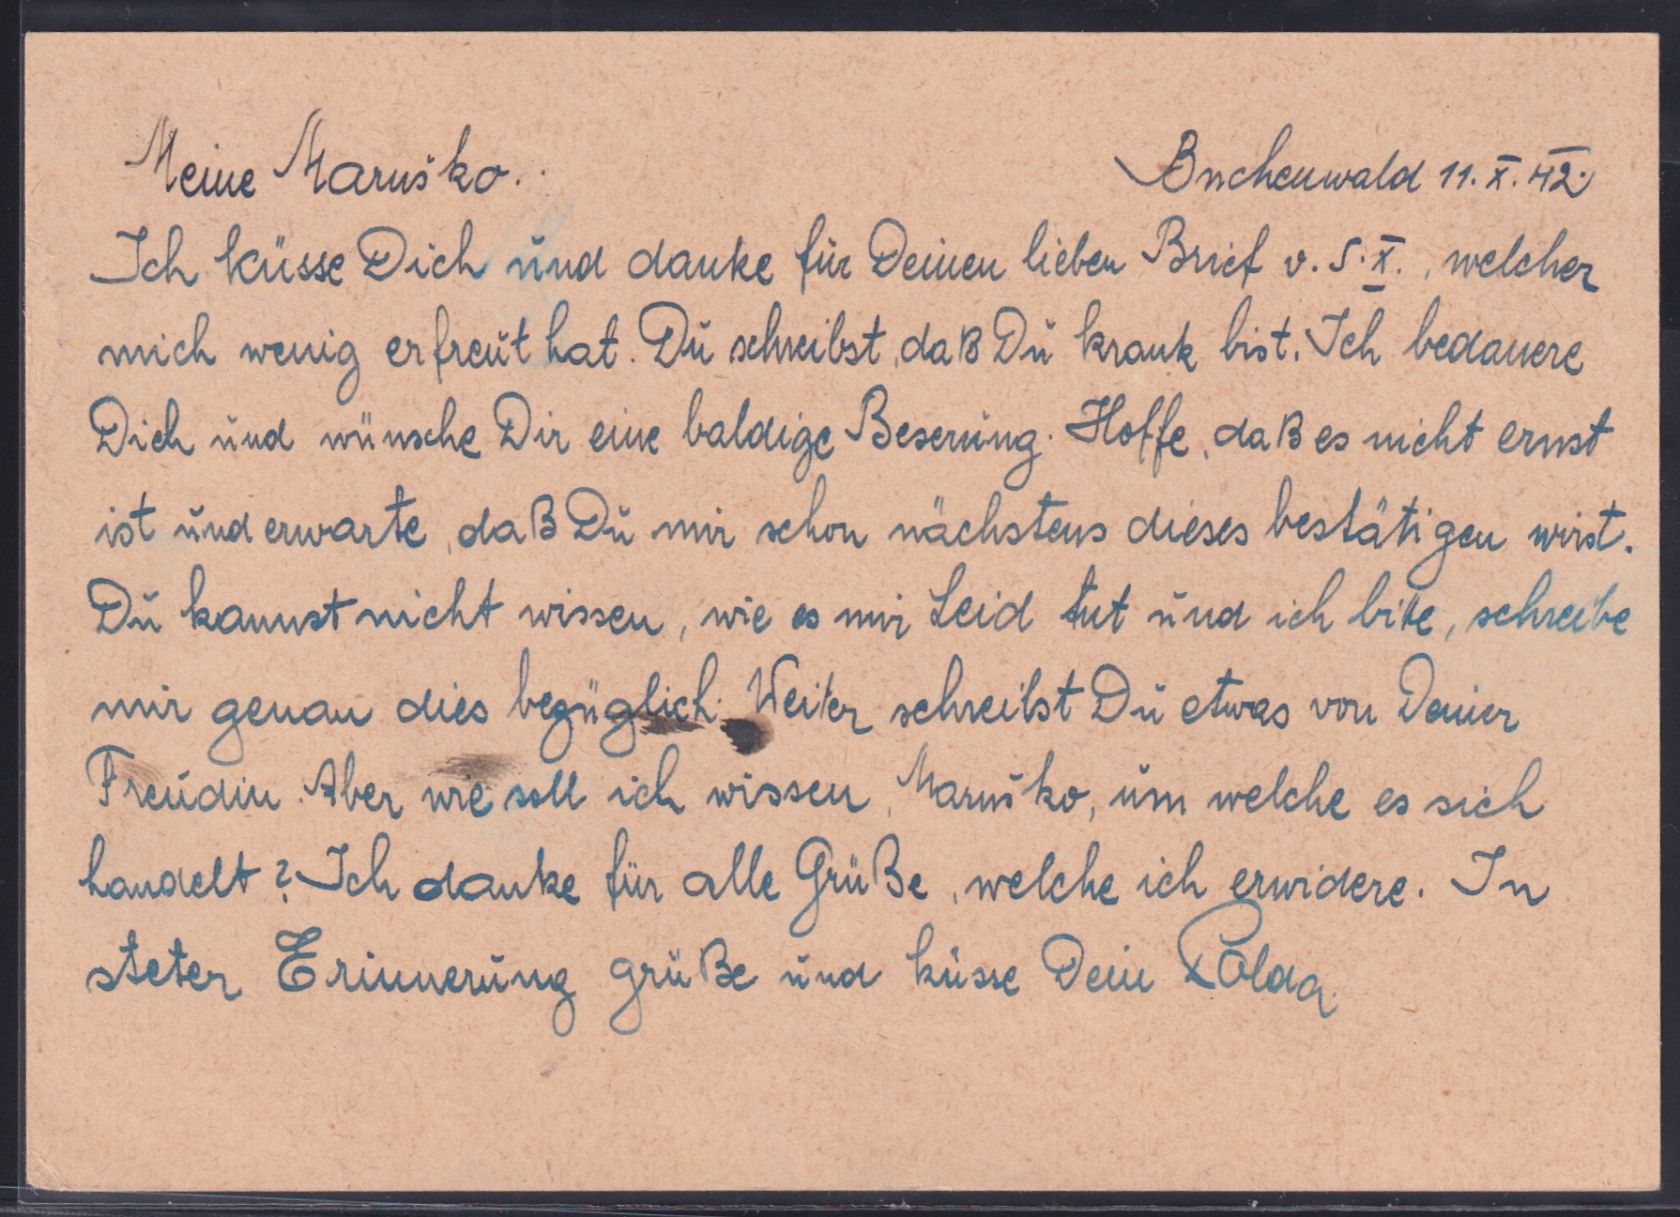 Meine Maruško.. Buchenwald 11. X. 42.
Ich küsse Dich und danke für Deinen lieben Brief v. 5. X., welcher
mich wenig erfreut hat. Du schreibst, daß Du krank bist. Ich bedauere
Dich und wünsche Dir eine baldige Beserung. Hoffe, daß es nicht ernst
ist und erwarte, daß Du mir schon nächstens dieses bestätigen wirst.
Du kannst nicht wissen, wie es mir Leid tut und ich bitte, schreibe
mir genau dies bezüglich. Weiter schreibst Du etwas von Deiner
Freudin. Aber wie soll ich wissen, Maruško, um welche es sich
handelt? Ich danke für alle Grüße, welche ich erwidere. In
steter Erinnerung grüße und küsse Dein Polda.